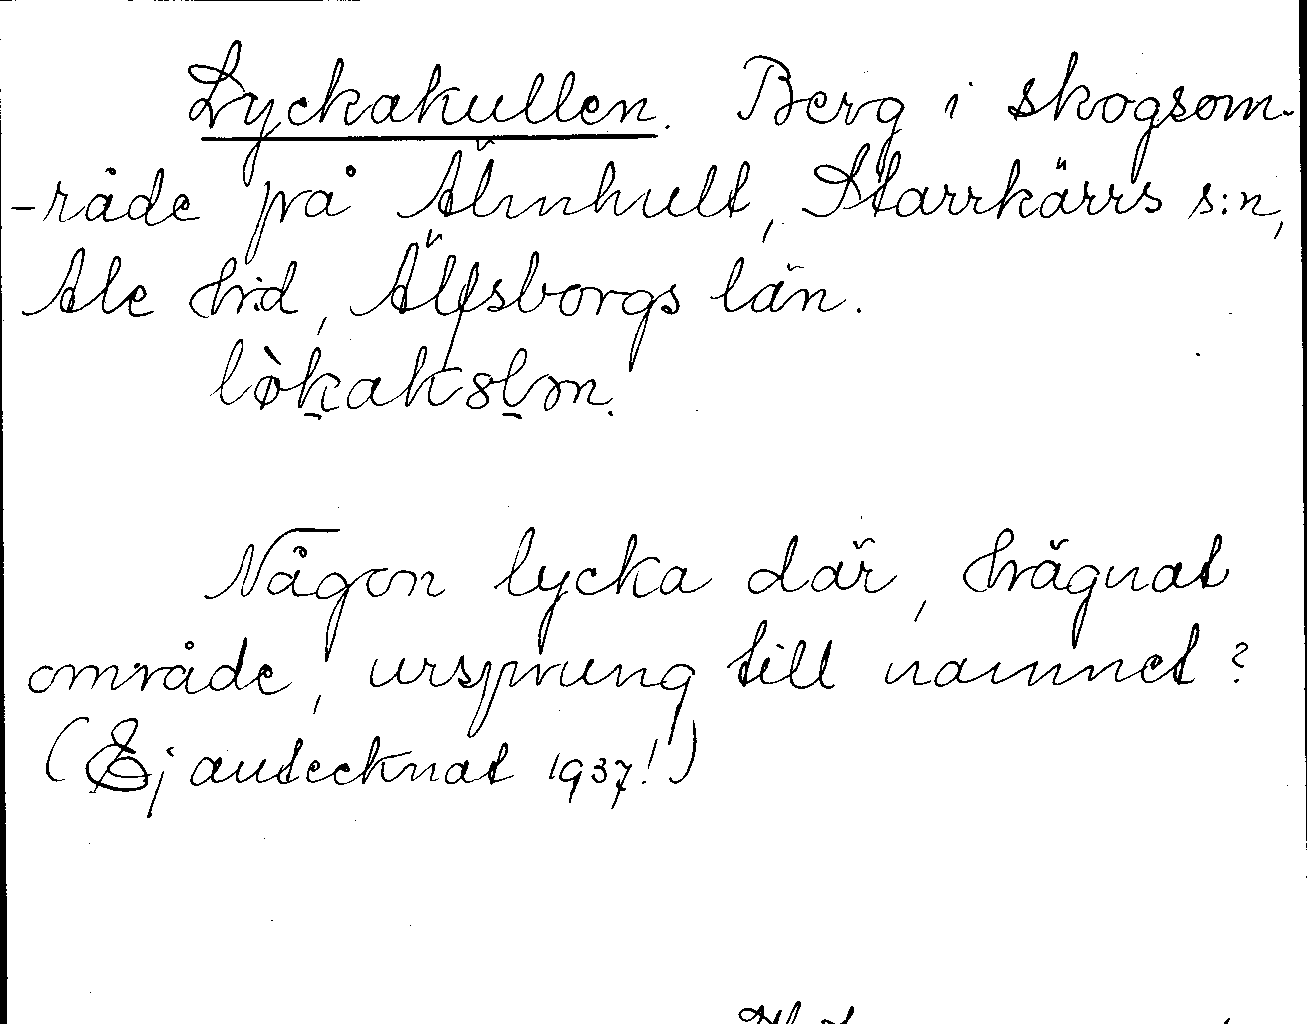 Lyckakullen. Berg i skogsom-
-råde på Älmhult, Starrkärrs s:n,
Ale hd, Älfsborgs län.
lò̱kakslm.
Någon lycka där, hägnat
område, ursprung till namnet?
(Ej antecknat 1937!)